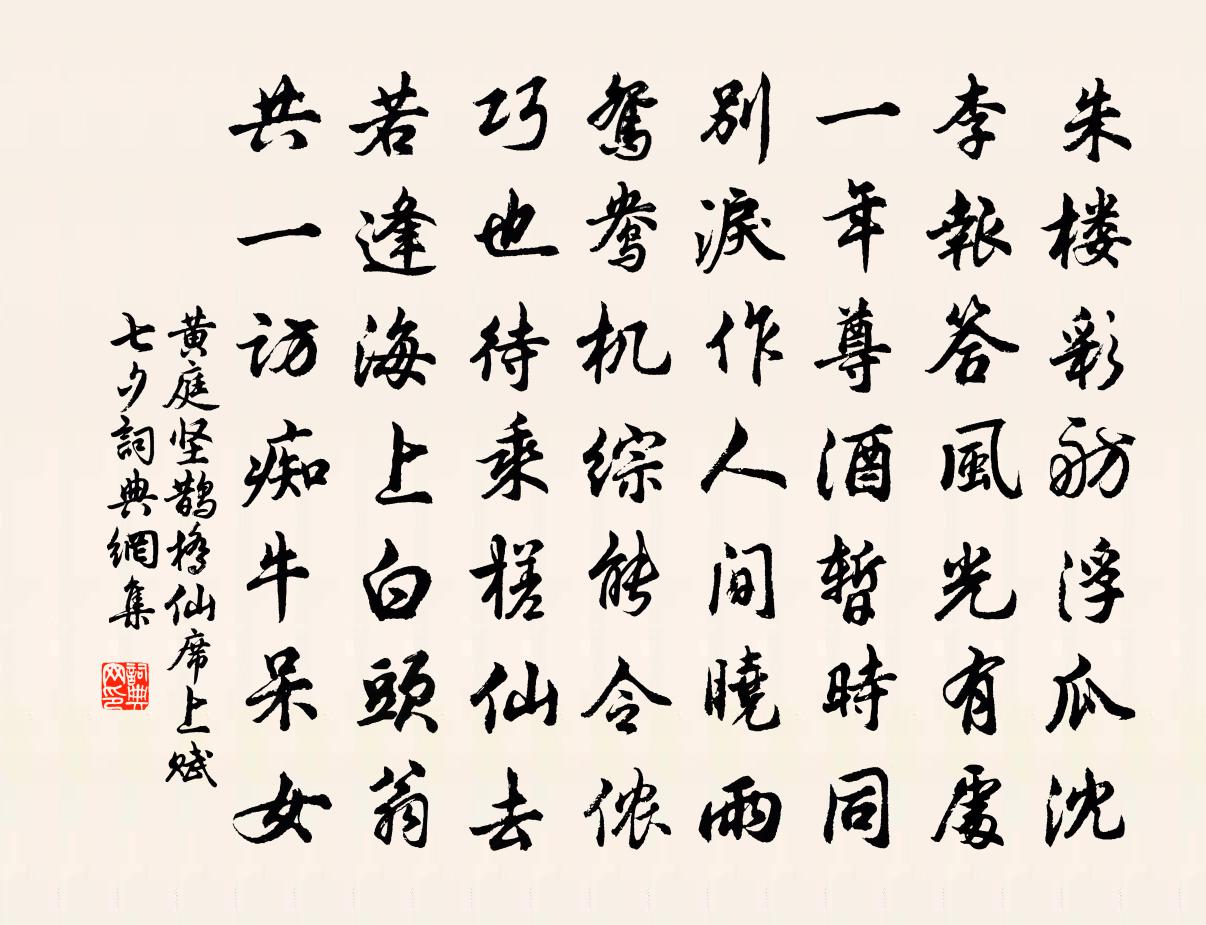 朱楼彩舫浮瓜沈
李報答風光有處
一年尊酒暫時同
別淚作人间曉雨
鸳鸯机综能令侬
巧也待乘槎仙去
若逢海上白頭翁
共一访痴牛呆女
黄庭坚鹊橋仙席上赋
七夕詞典網集
詞典网印